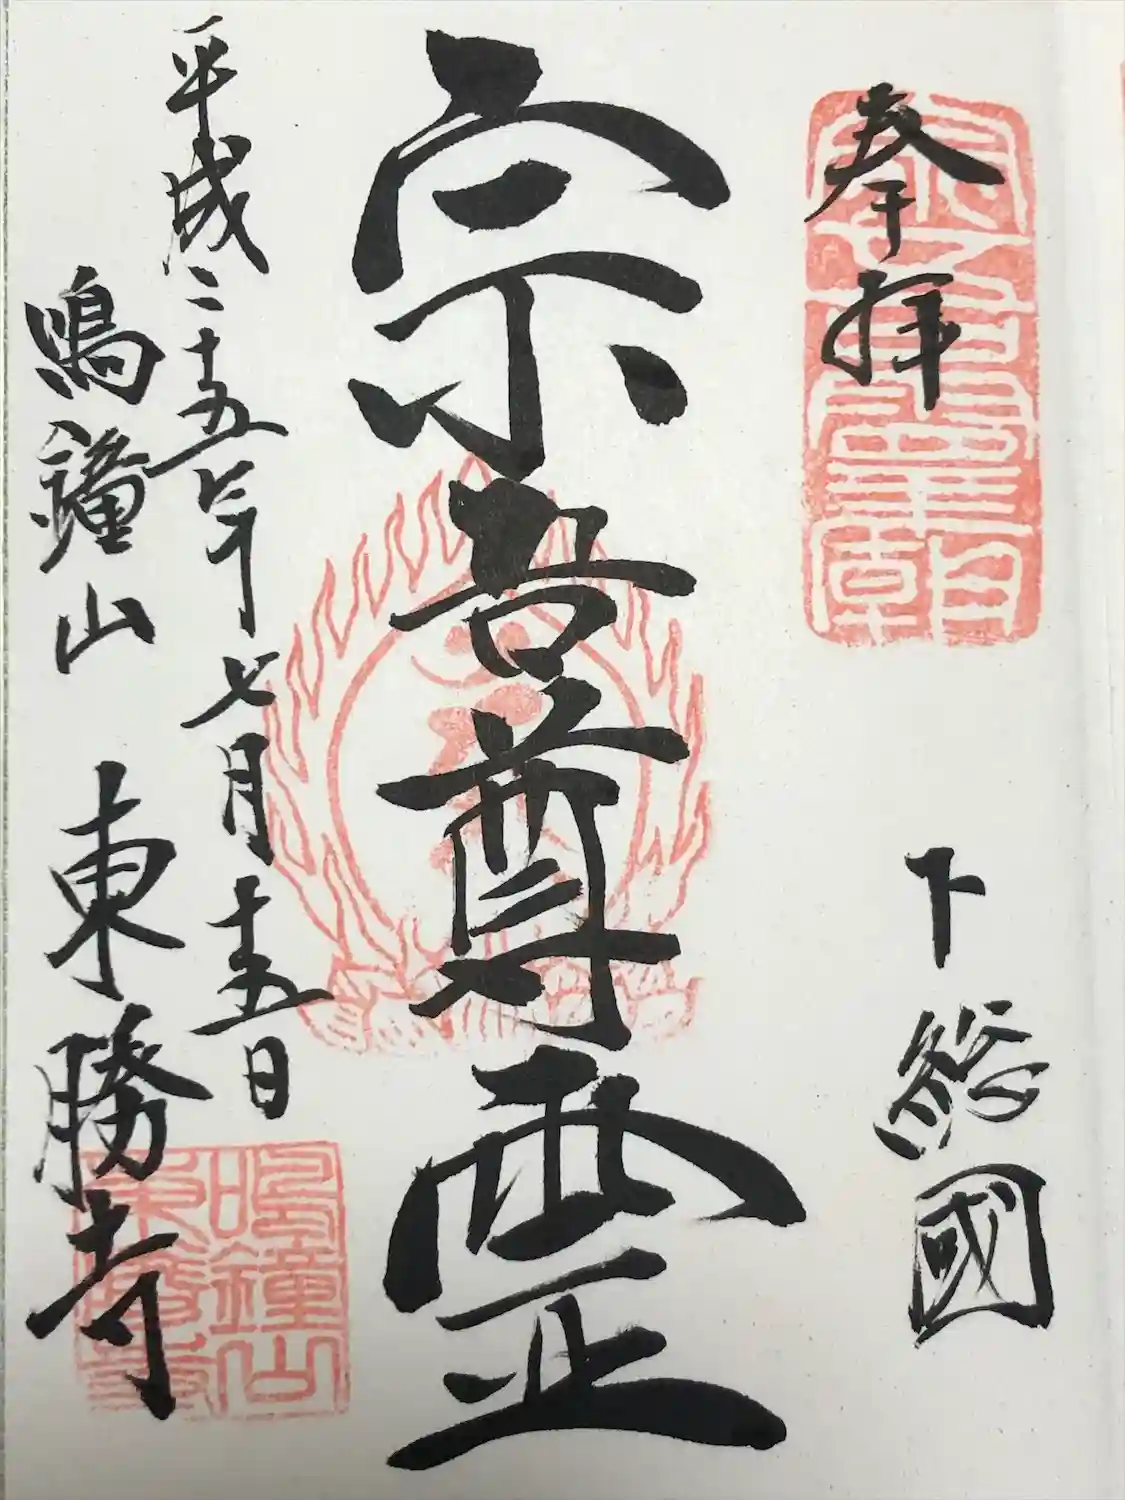 奉拝
下総國
宗吾尊霊
平成二十五年七月十五日
鳴鐘山 東勝寺
鳴鐘山
東勝寺